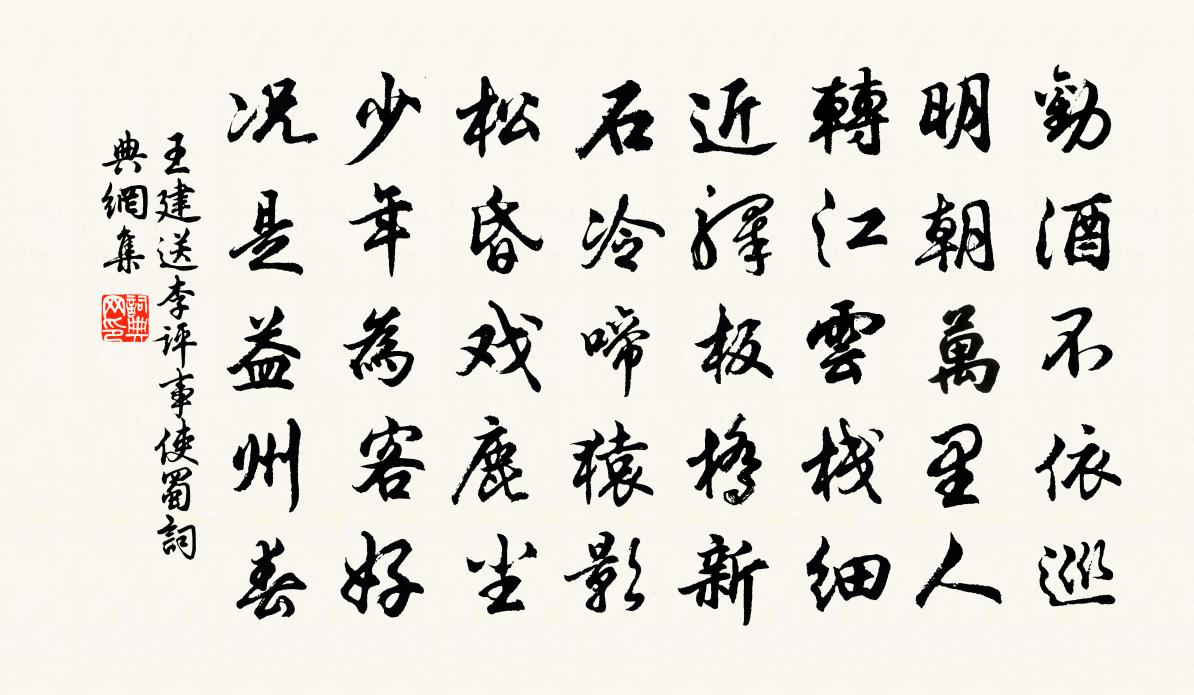 勸酒不依巡
明朝萬里人
轉江雲棧細
近驛板橋新
石冷啼猿影
松昏戏鹿尘
少年為客好
况是益州春
王建送李評事使蜀詞
典網集
詞典
网印